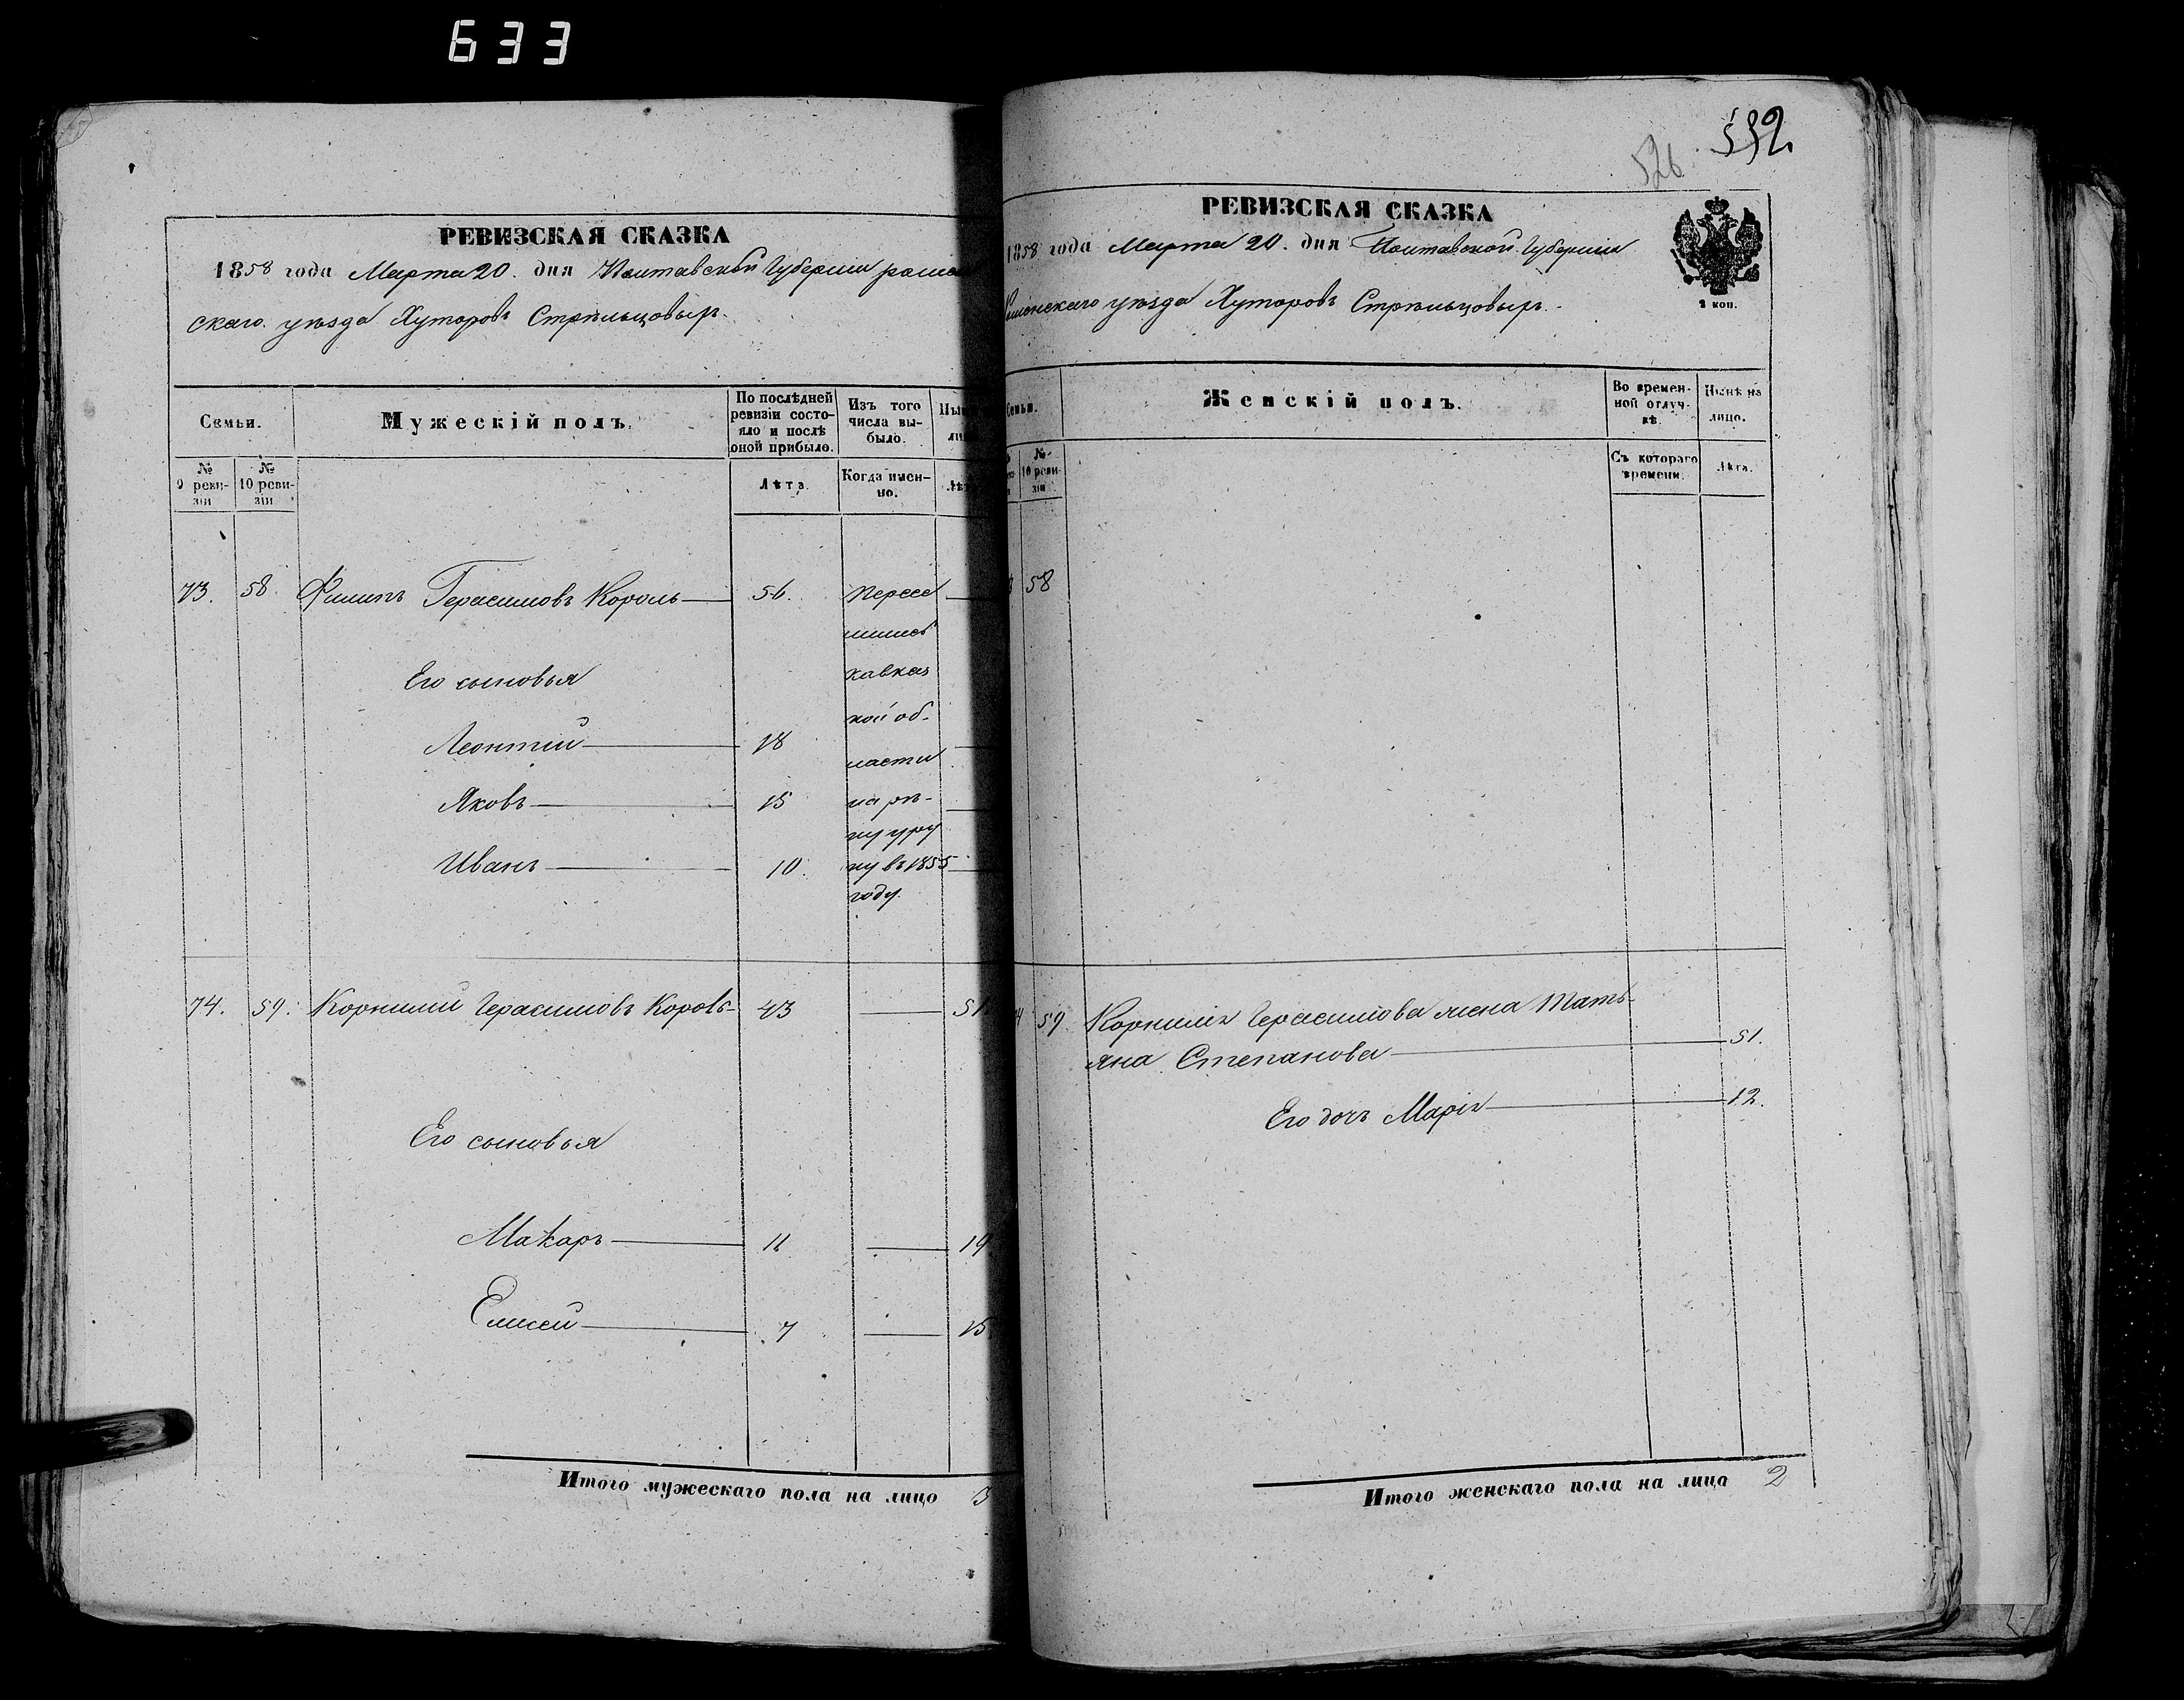 633
РЕВИЗСКАЯ СКАЗКА
1858 года Марта 20. дня Полтавской Губернии
скаго уѣзда Хуторовъ Стрѣльцовыхъ.
Семьи.
Мужескій полъ.
По послѣдней ревизіи состояло и послѣ оной прибыло.
Изъ того числа выбыло.
№ 9 ревизіи
№ 10 ревизіи
Лѣта.
Когда именно.
73. 58. Филипъ Герасимовъ Король 56. Пересе
лились
кавказ
Его сыновья
кой об-
Леонтий 18
ласти
Яковъ 15 на рѣ-
ку уру
Иванъ 10. пу въ 1855
году.
74. 59. Корнилий Герасимовъ Король 43 51
Его сыновья
Макаръ 11. 19
Елисей 7 15
Итого мужескаго пола на лицо 3
532
526.
РЕВИЗСКАЯ СКАЗКА
1858 года Марта 20. дня Полтавской Губерніи
скаго уѣзда Хуторовъ Стрѣльцовыхъ.
2 коп.
Семьи.
Женскій полъ.
Во временной отлучкѣ.
Нынѣ на лицо.
№ 10 ревизіи
Съ котораго времени.
Лѣта.
58
59. Корнилія Герасимова жена Тать-
яна Степанова 51.
Его дочь Марія 12.
Итого женскаго пола на лицо 2